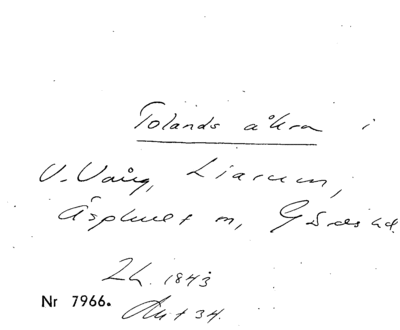 Tolands åkra i
V. Vång, Liarum,
Äsphult m, Gärds hd.
Lh. 1843
Nr 7966. Akt 34.